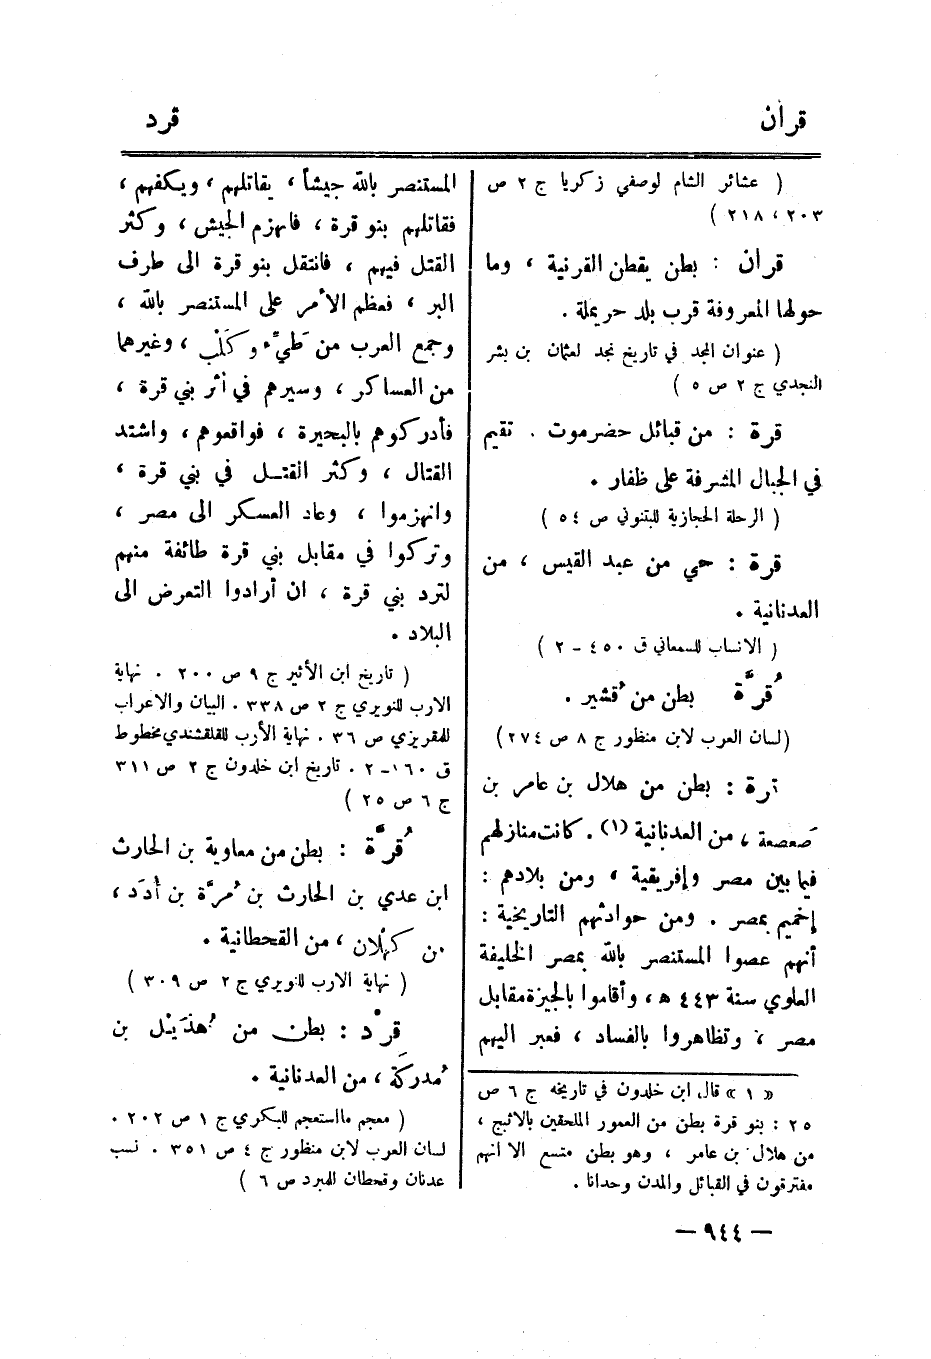 قرآن
قرد
( عشائر الشام لوصفي زكريا ج ٢ ص
٢٠٣ ، ٢١٨ )
قرآن : بطن يقطن القرنية ، وما
حولها المعروفة قرب بلد حريملة .
( عنوان المجد في تاريخ نجد لعثمان بن بشر
النجدي ج ٢ ص ٥ )
قرة : من قبائل حضرموت . تقيم
في الجبال المشرفة على ظفار .
( الرحلة الحجازية للبتنوني ص ٥٤ )
قرة : حي من عبد القيس ، من
العدنانية .
( الانساب للسمعاني ق ٤٥٠ – ٢ )
قُرَّة بطن من قُشير .
(لسان العرب لابن منظور ج ٨ ص ٢٧٤)
قرة : بطن من هلال بن عامر بن
صَعصعة ، من العدنانية (١) . كانت منازلهم
فيما بين مصر وإفريقية ، ومن بلادهم :
إخميم بمصر . ومن حوادثهم التاريخية :
أنهم عصوا المستنصر بالله بمصر الخليفة
العلوي سنة ٤٤٣ ه ، وأقاموا بالجيزة مقابل
مصر ، وتظاهروا بالفساد ، فعبر اليهم
« ١ » قال ابن خلدون في تاريخه ج ٦ ص
٢٥ : بنو قرة بطن من العمور الملحقين بالاثبج ،
من هلال بن عامر ، وهو بطن متسع الا انهم
مفترقون في القبائل والمدن وحدانا .
المستنصر بالله جيشاً ، يقاتلهم ، ويكفهم ،
فقاتلهم بنو قرة ، فانهزم الجيش ، وكثر
القتل فيهم ، فانتقل بنو قرة الى طرف
البر ، فعظم الأمر على المستنصر بالله ،
وجمع العرب من طَيِّء وكَلْب ، وغيرهما
من العساكر ، وسيرهم في أثر بني قرة ،
فأدركوهم بالبحيرة ، فواقعوهم ، واشتد
القتال ، وكثر القتل في بني قرة ،
وانهزموا ، وعاد العسكر الى مصر ،
وتركوا في مقابل بني قرة طائفة منهم
لترد بني قرة ، ان أرادوا التعرض الى
البلاد .
( تاريخ ابن الأثير ج ٩ ص ٢٠٠ . نهاية
الارب للنويري ج ٢ ص ٣٣٨ . البيان والاعراب
للمقريزي ص ٣٦ . نهاية الأرب للقلقشندي مخطوط
ق ١٦٠ – ٢ . تاريخ ابن خلدون ج ٢ ص ٣١١
ج ٦ ص ٢٥ )
قُرَّة : بطن من معاوية بن الحارث
ابن عدي بن الحارث بن مُرَّة بن أُدَد ،
من كَهْلان ، من القحطانية .
( نهاية الارب للنويري ج ٢ ص ٣٠٩ )
قرْد : بطن من هُذَيْل بن
مُدركَة ، من العدنانية .
( معجم ما استعجم للبكري ج ١ ص ٢٠٢ .
لسان العرب لابن منظور ج ٤ ص ٣٥١ . نسب
عدنان وقحطان للمبرد ص ٦ )
— ٩٤٤ —